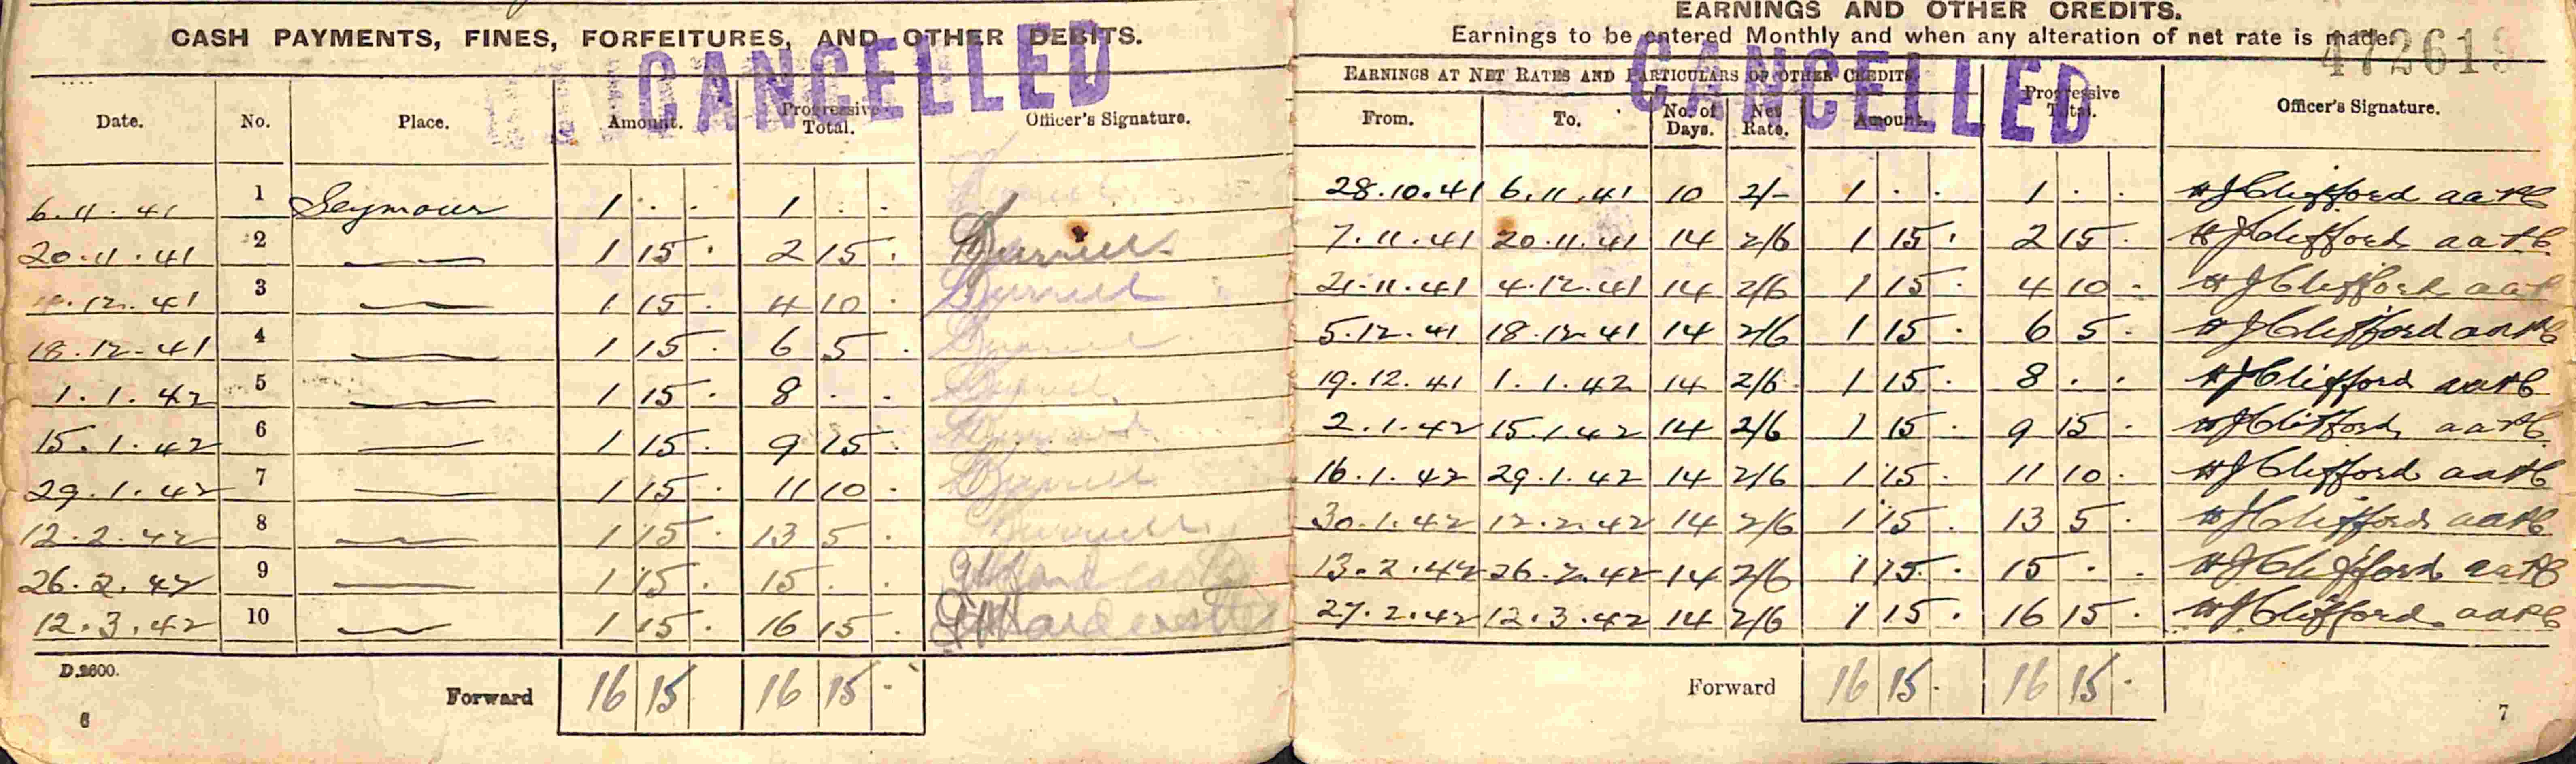 CASH PAYMENTS, FINES, FORFEITURES, AND OTHER DEBITS.
CANCELLED
Date. No. Place. Amount. Progressive Total. Officer's Signature.
6.11.41 1 Seymour 1 . . 1 . .
20.11.41 2 — 1 15 . 2 15 .
4.12.41 3 — 1 15 . 4 10 .
18.12.41 4 — 1 15 . 6 5 .
1.1.42 5 — 1 15 . 8 . .
15.1.42 6 — 1 15 . 9 15 .
29.1.42 7 — 1 15 . 11 10 .
12.2.42 8 — 1 15 . 13 5 .
26.2.42 9 — 1 15 . 15 . .
12.3.42 10 — 1 15 . 16 15 .
D.2600.
Forward 16 15 16 15 .
6
EARNINGS AND OTHER CREDITS.
Earnings to be entered Monthly and when any alteration of net rate is made.
CANCELLED
EARNINGS AT NET RATES AND PARTICULARS OF OTHER CREDITS
From. To. No. of Days. Net Rate. Amount. Progressive Total. Officer's Signature.
28.10.41 6.11.41 10 2/- 1 . . 1 . . WJClifford
7.11.41 20.11.41 14 2/6 1 15 . 2 15 . WJClifford
21.11.41 4.12.41 14 2/6 1 15 . 4 10 . WJClifford
5.12.41 18.12.41 14 2/6 1 15 . 6 5 . WJClifford
19.12.41 1.1.42 14 2/6 1 15 . 8 . . WJClifford
2.1.42 15.1.42 14 2/6 1 15 . 9 15 . WJClifford
16.1.42 29.1.42 14 2/6 1 15 . 11 10 . WJClifford
30.1.42 12.2.42 14 2/6 1 15 . 13 5 . WJClifford
13.2.42 26.2.42 14 2/6 1 15 . 15 . . WJClifford
27.2.42 12.3.42 14 2/6 1 15 . 16 15 . WJClifford
Forward 16 15 . 16 15 .
7